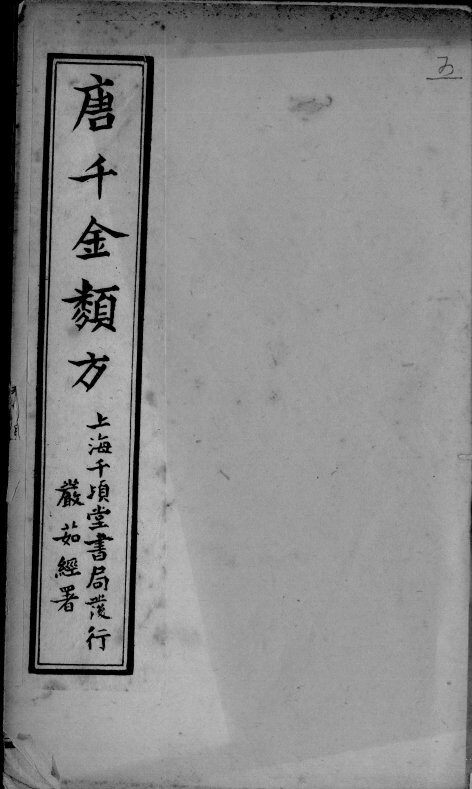 唐千金類方
上海千頃堂書局發行
嚴茹經署
五